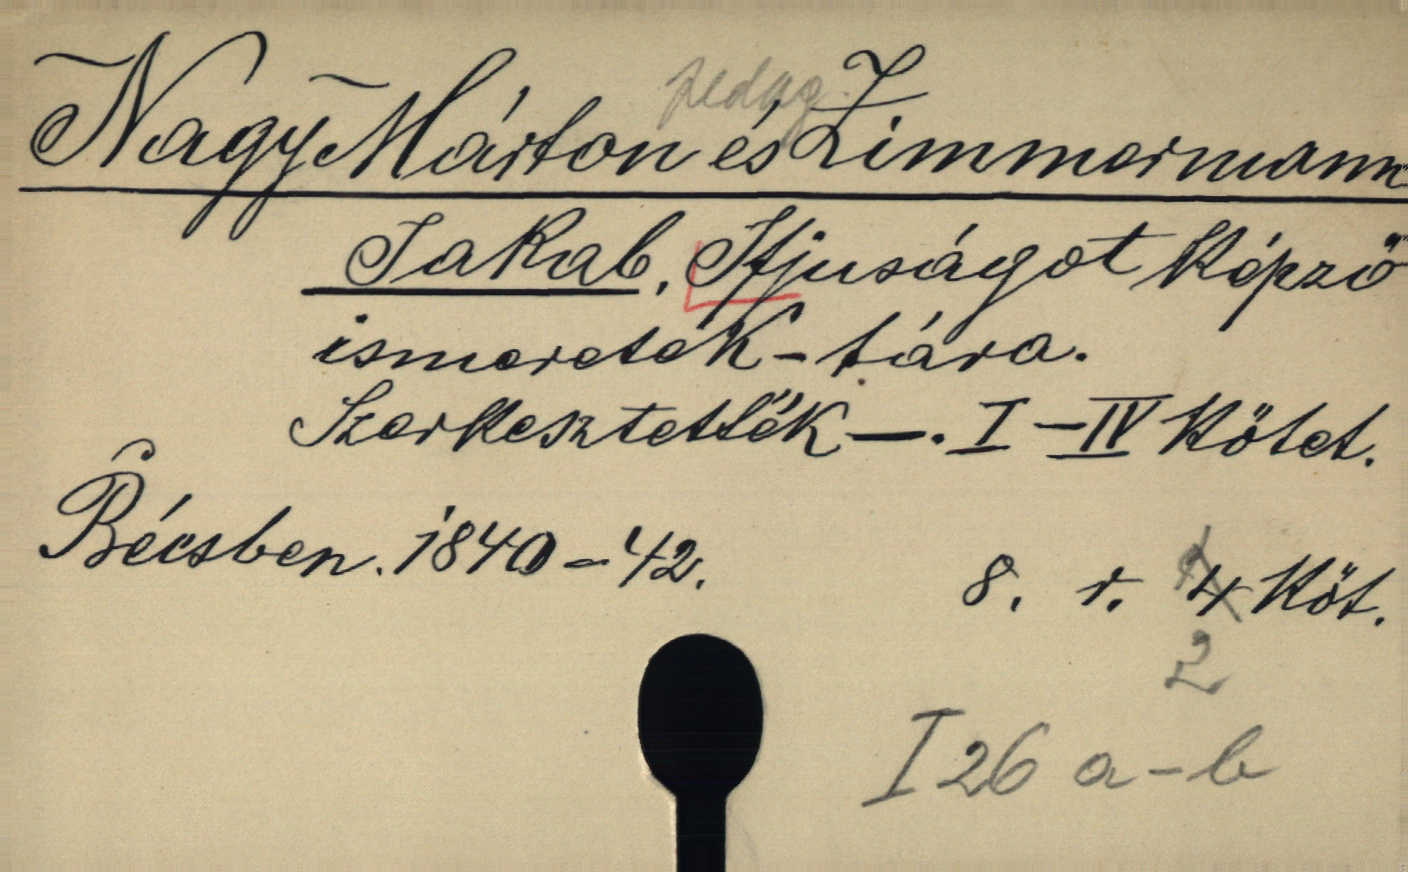 pedag.
Nagy Márton és Zimmermann
Jakab, Ifjuságot képző
ismeretek-tára.
Szerkesztették —. I-IV Kötet.
Bécsben. 1840-42.
8. r. 4 Köt.
2
I 26 a-b